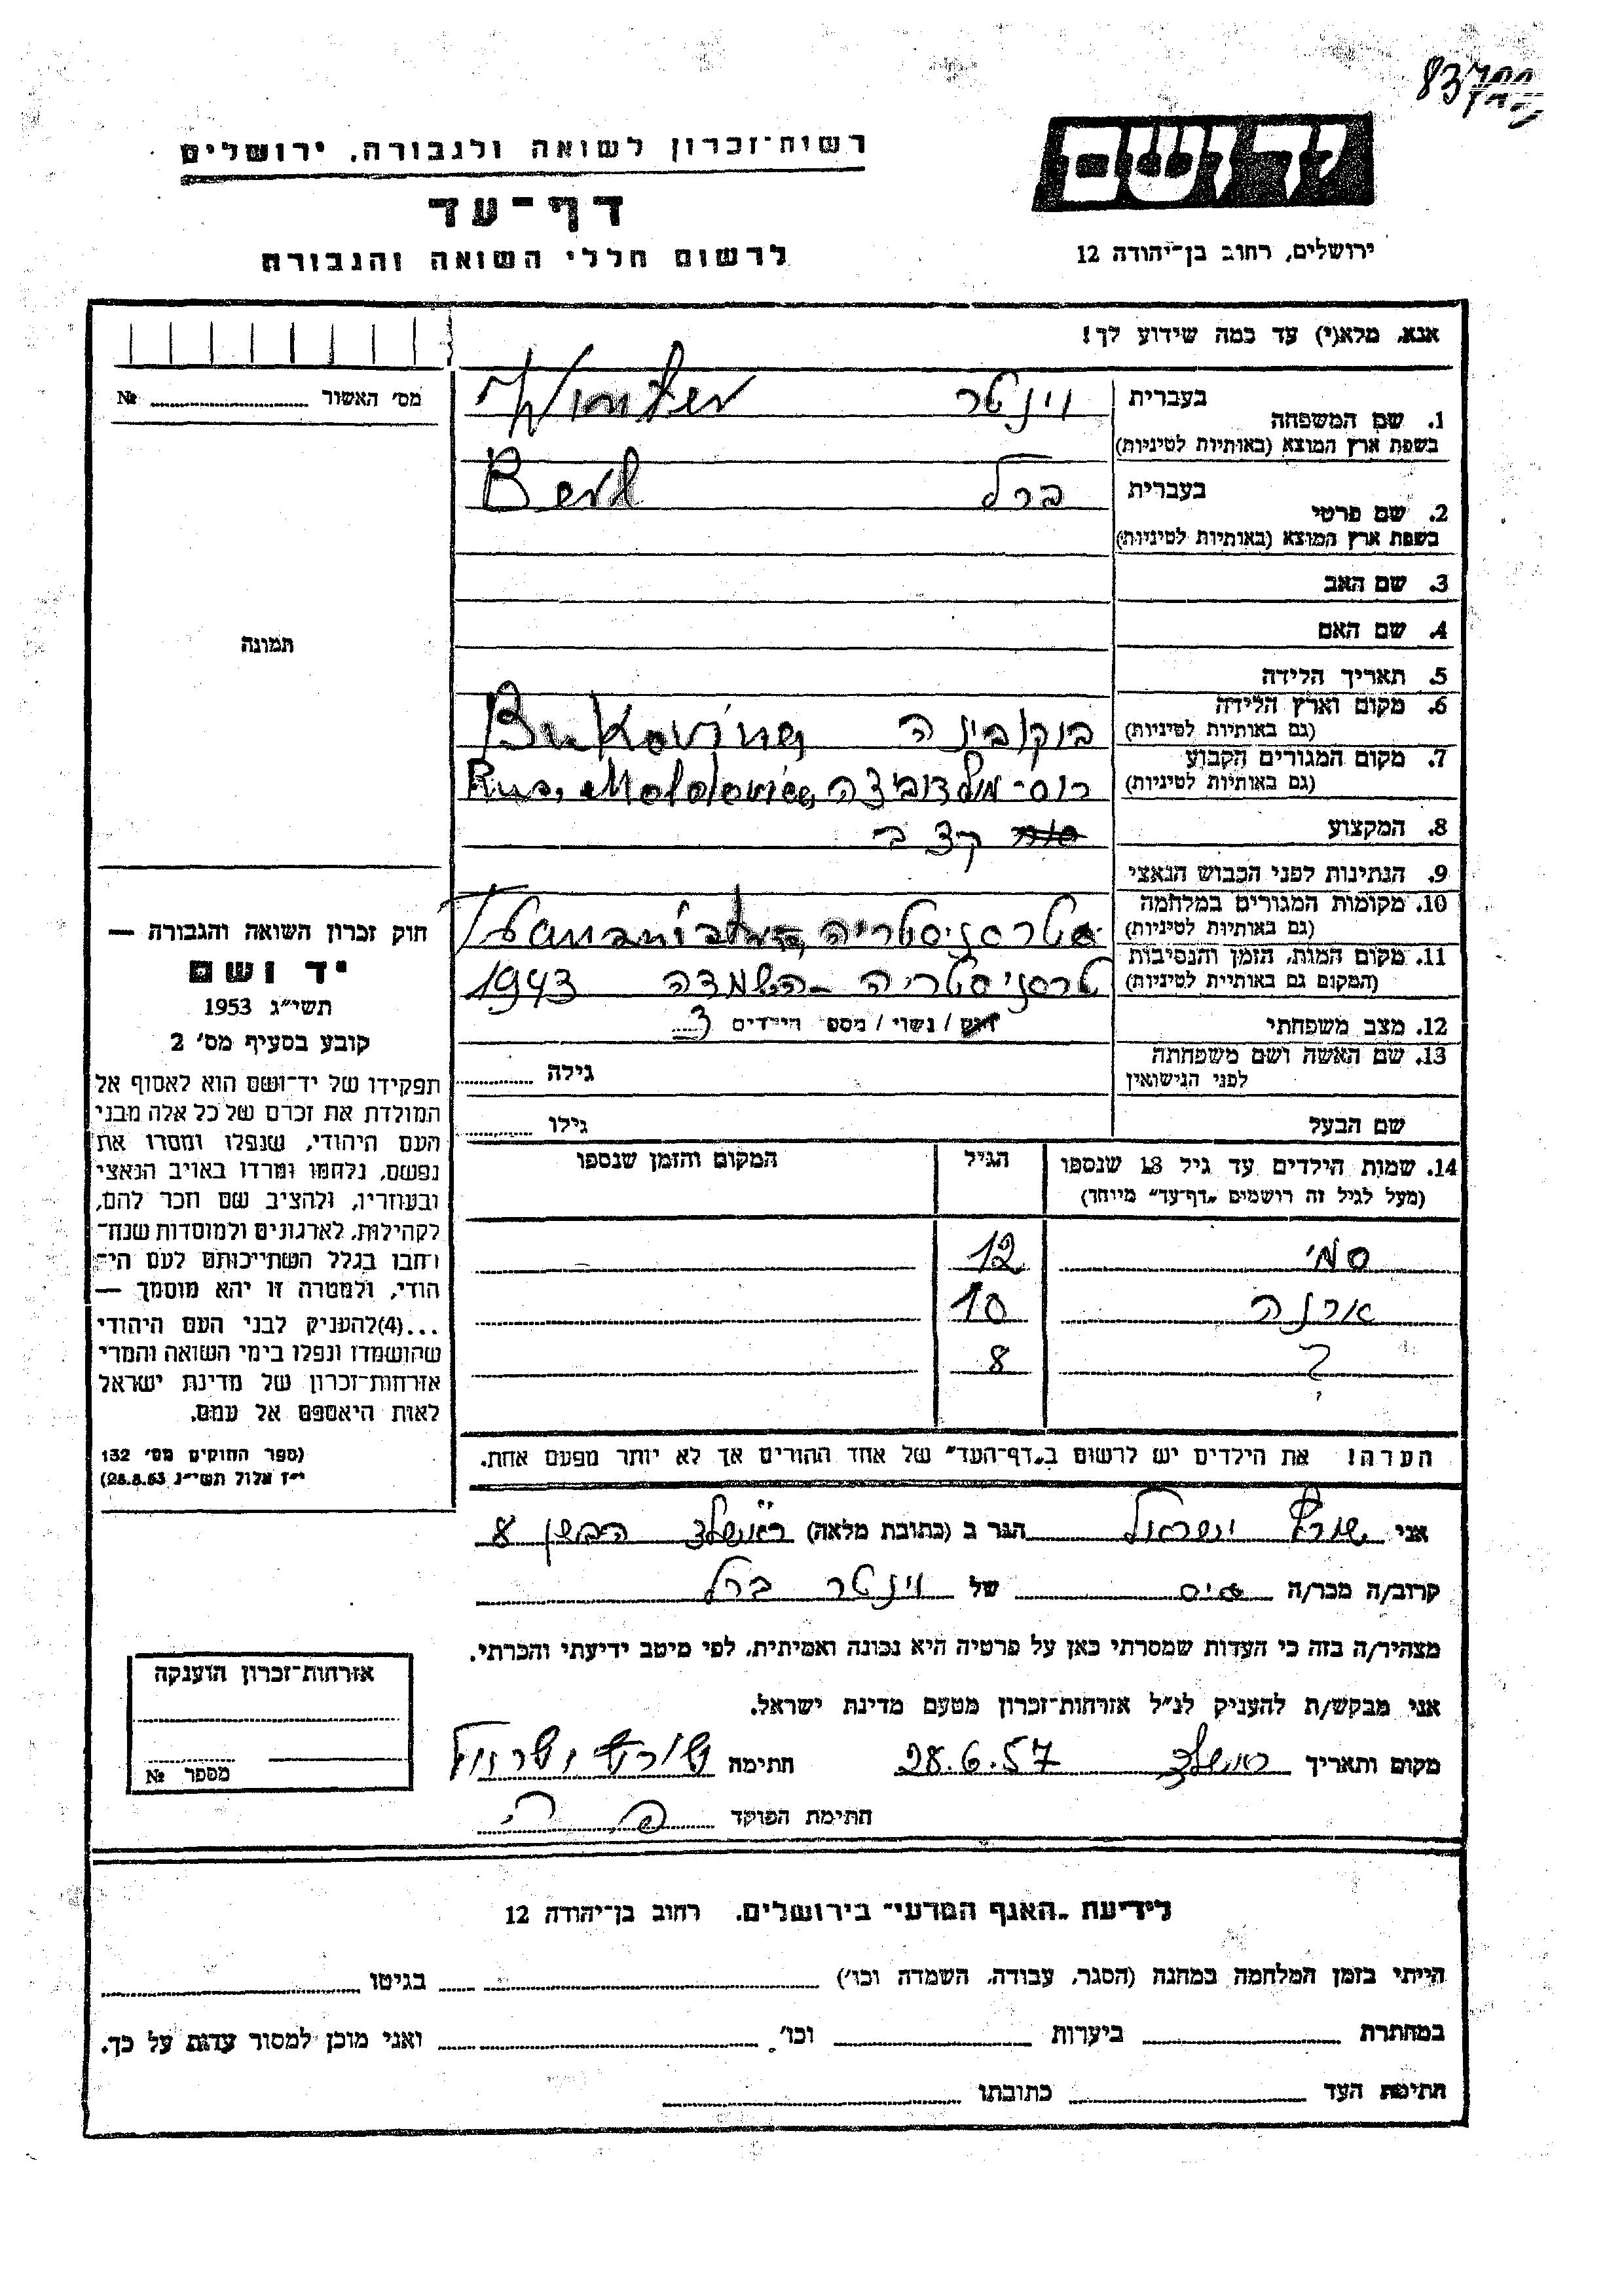 83700
יד ושם
רשות־זכרון לשואה ולגבורה, ירושלים
דף־עד
לרשום חללי השואה והגבורה
ירושלים, רחוב בן־יהודה 12
אנא, מלא(י) עד כמה שידוע לך!
מס' האשור № 
1. שם המשפחה בעברית וינטר
בשפת ארץ המוצא (באותיות לטיניות) Winter
2. שם פרטי בעברית ברל
בשפת ארץ המוצא (באותיות לטיניות) Berl
3. שם האב
4. שם האם
5. תאריך הלידה
6. מקום וארץ הלידה (גם באותיות לטיניות) בוקובינה Bukovina
7. מקום המגורים הקבוע (גם באותיות לטיניות) רוס־מולדוביצה Rus. Moldovica
8. המקצוע קצב
9. הנתינות לפני הכבוש הנאצי
10. מקומות המגורים במלחמה (גם באותיות לטיניות) טרסניסטריה
11. מקום המות, הזמן והנסיבות (המקום גם באותיית לטיניות) טרסניסטריה - השמדה 1943
12. מצב משפחתי רווק / נשוי / מספ הילדים 3
13. שם האשה ושם משפחתה לפני הנישואין גילה
שם הבעל גילו
14. שמות הילדים עד גיל 18 שנספו (מעל לגיל זה רושמים „דף־עד" מיוחד) הגיל המקום והזמן שנספו
סמי 12
ארנה 10
? 8
הערה! את הילדים יש לרשום ב„דף־העד" של אחד ההורים אך לא יותר מפעם אחת.
תמונה
חוק זכרון השואה והגבורה —
יד ושם
תשי"ג 1953
קובע בסעיף מס' 2
תפקידו של יד־ושם הוא לאסוף אל
המולדת את זכרם של כל אלה מבני
העם היהודי, שנפלו ומסרו את
נפשם, נלחמו ומרדו באויב הנאצי
ובעוזריו, ולהציב שם וזכר להם,
לקהילות, לארגונים ולמוסדות שנח־
רבו בגלל השתייכותם לעם הי־
הודי, ולמטרה זו יהא מוסמך —
...(4)להעניק לבני העם היהודי
שהושמדו ונפלו בימי השואה והמרי
אזרחות־זכרון של מדינת ישראל
לאות היאספם אל עמם.
(ספר החוקים מס' 132
י"ז אלול תשי"ג 28.8.53)
אני ישראל הגר ב (כתובת מלאה) ראשל"צ 8
קרוב/ה מכר/ה גיס של וינטר ברל
מצהיר/ה בזה כי העדות שמסרתי כאן על פרטיה היא נכונה ואמיתית, לפי מיטב ידיעתי והכרתי.
אני מבקש/ת להעניק לנ"ל אזרחות־זכרון מטעם מדינת ישראל.
מקום ותאריך ראשלצ 28.6.57 חתימה
חתימת הפוקד
אזרחות־זכרון הוענקה
מספר №
לידיעת „האגף המדעי" בירושלים, רחוב בן־יהודה 12
הייתי בזמן המלחמה במחנה (הסגר, עבודה, השמדה וכו') בגיטו
במחתרת ביערות וכו' ואני מוכן למסור עדות על כך.
חתימת העד כתובתו